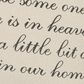 some one
is in heave
a little bit o
in our hom